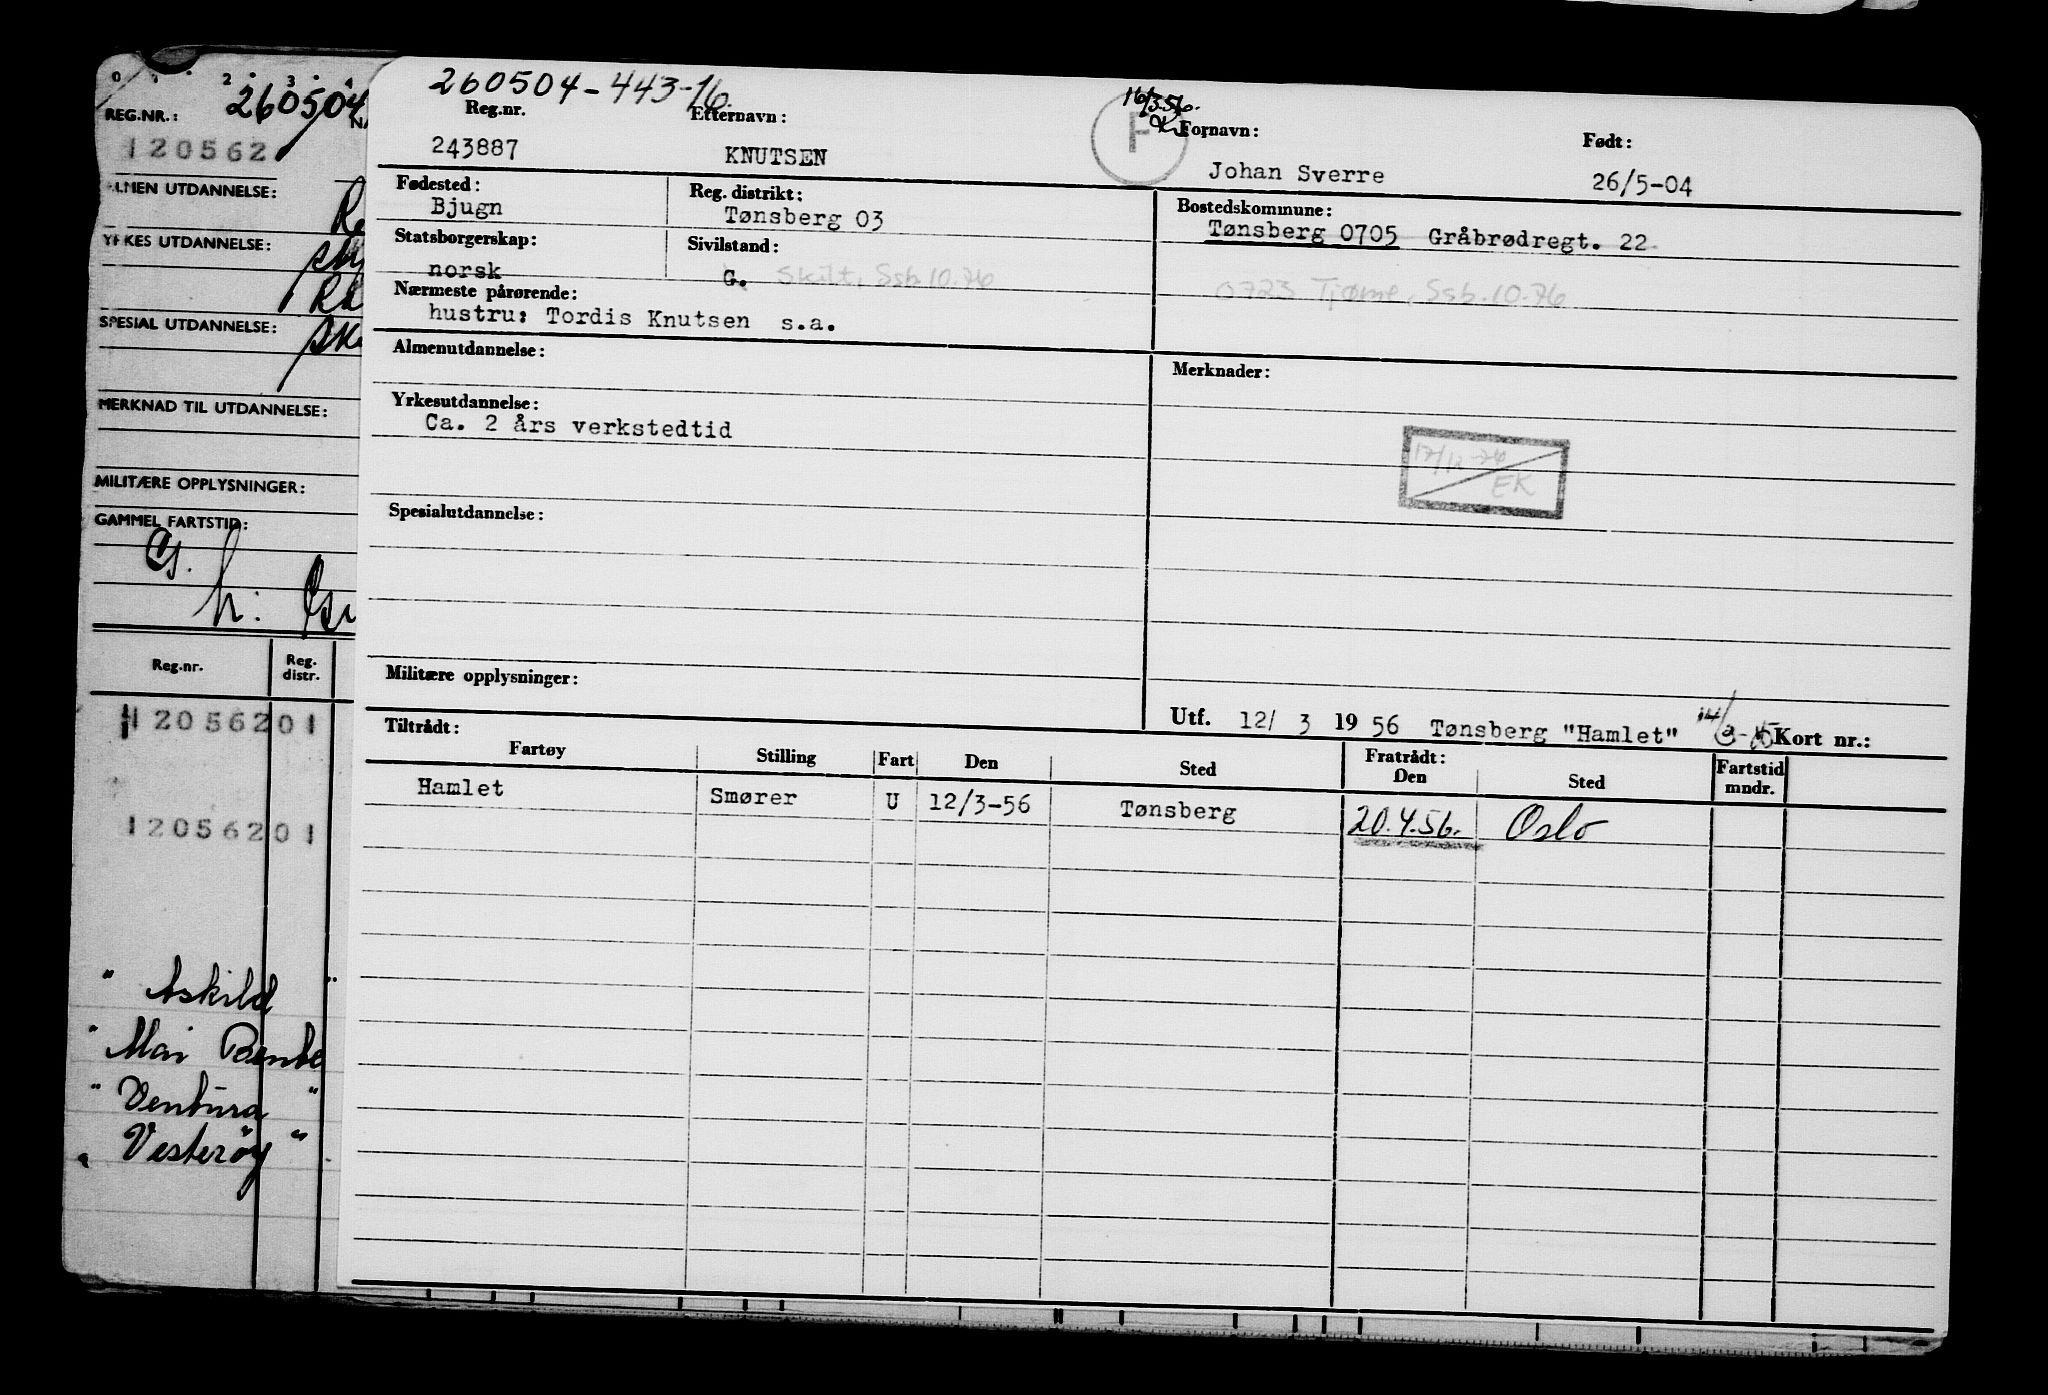 260504-443-16.
16/3.56.
Reg.nr. Etternavn: Fornavn: Født:
243887 KNUTSEN Johan Sverre 26/5-04
Fødested: Reg. distrikt: Bostedskommune:
Bjugn Tønsberg 03 Tønsberg 0705 Gråbrødregt. 22
Statsborgerskap: Sivilstand:
norsk G. Skilt. Ssb. 10.76 0723 Tjøme, Ssb. 10.76
Nærmeste pårørende:
hustru: Tordis Knutsen s.a.
Almenutdannelse: Merknader:
Yrkesutdannelse:
Ca. 2 års verkstedtid
17/12-76
EK
Spesialutdannelse:
Militære opplysninger:
Utf. 12/ 3 19 56 Tønsberg "Hamlet" Kort nr.:
Tiltrådt: Fratrådt:
Fartøy Stilling Fart Den Sted Den Sted Fartstid mndr.
Hamlet Smører U 12/3-56 Tønsberg 20.4.56. Oslo
0 1 2 3 4
REG.NR.: 260504
120562
ALMEN UTDANNELSE:
YRKES UTDANNELSE:
SPESIAL UTDANNELSE:
MERKNAD TIL UTDANNELSE:
MILITÆRE OPPLYSNINGER:
GAMMEL FARTSTID:
Reg.nr. Reg. distr.
120562 01
120562 01
" Askild "
" Mai Bente
" Ventura "
" Vesterøy "